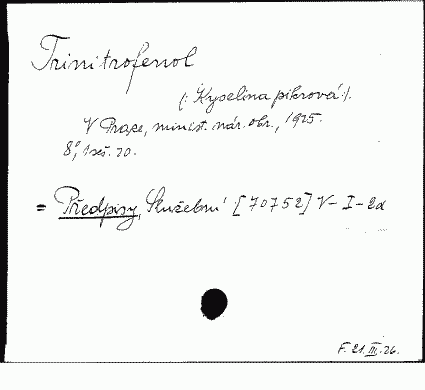 Trinitrofenol
(: Kyselina pikrová :).
V Praze, minist. nár. obr., 1925.
8°, 1 seš. 20.
= Předpisy, Služební [70752] V-I-2a
F. 21. III. 26.